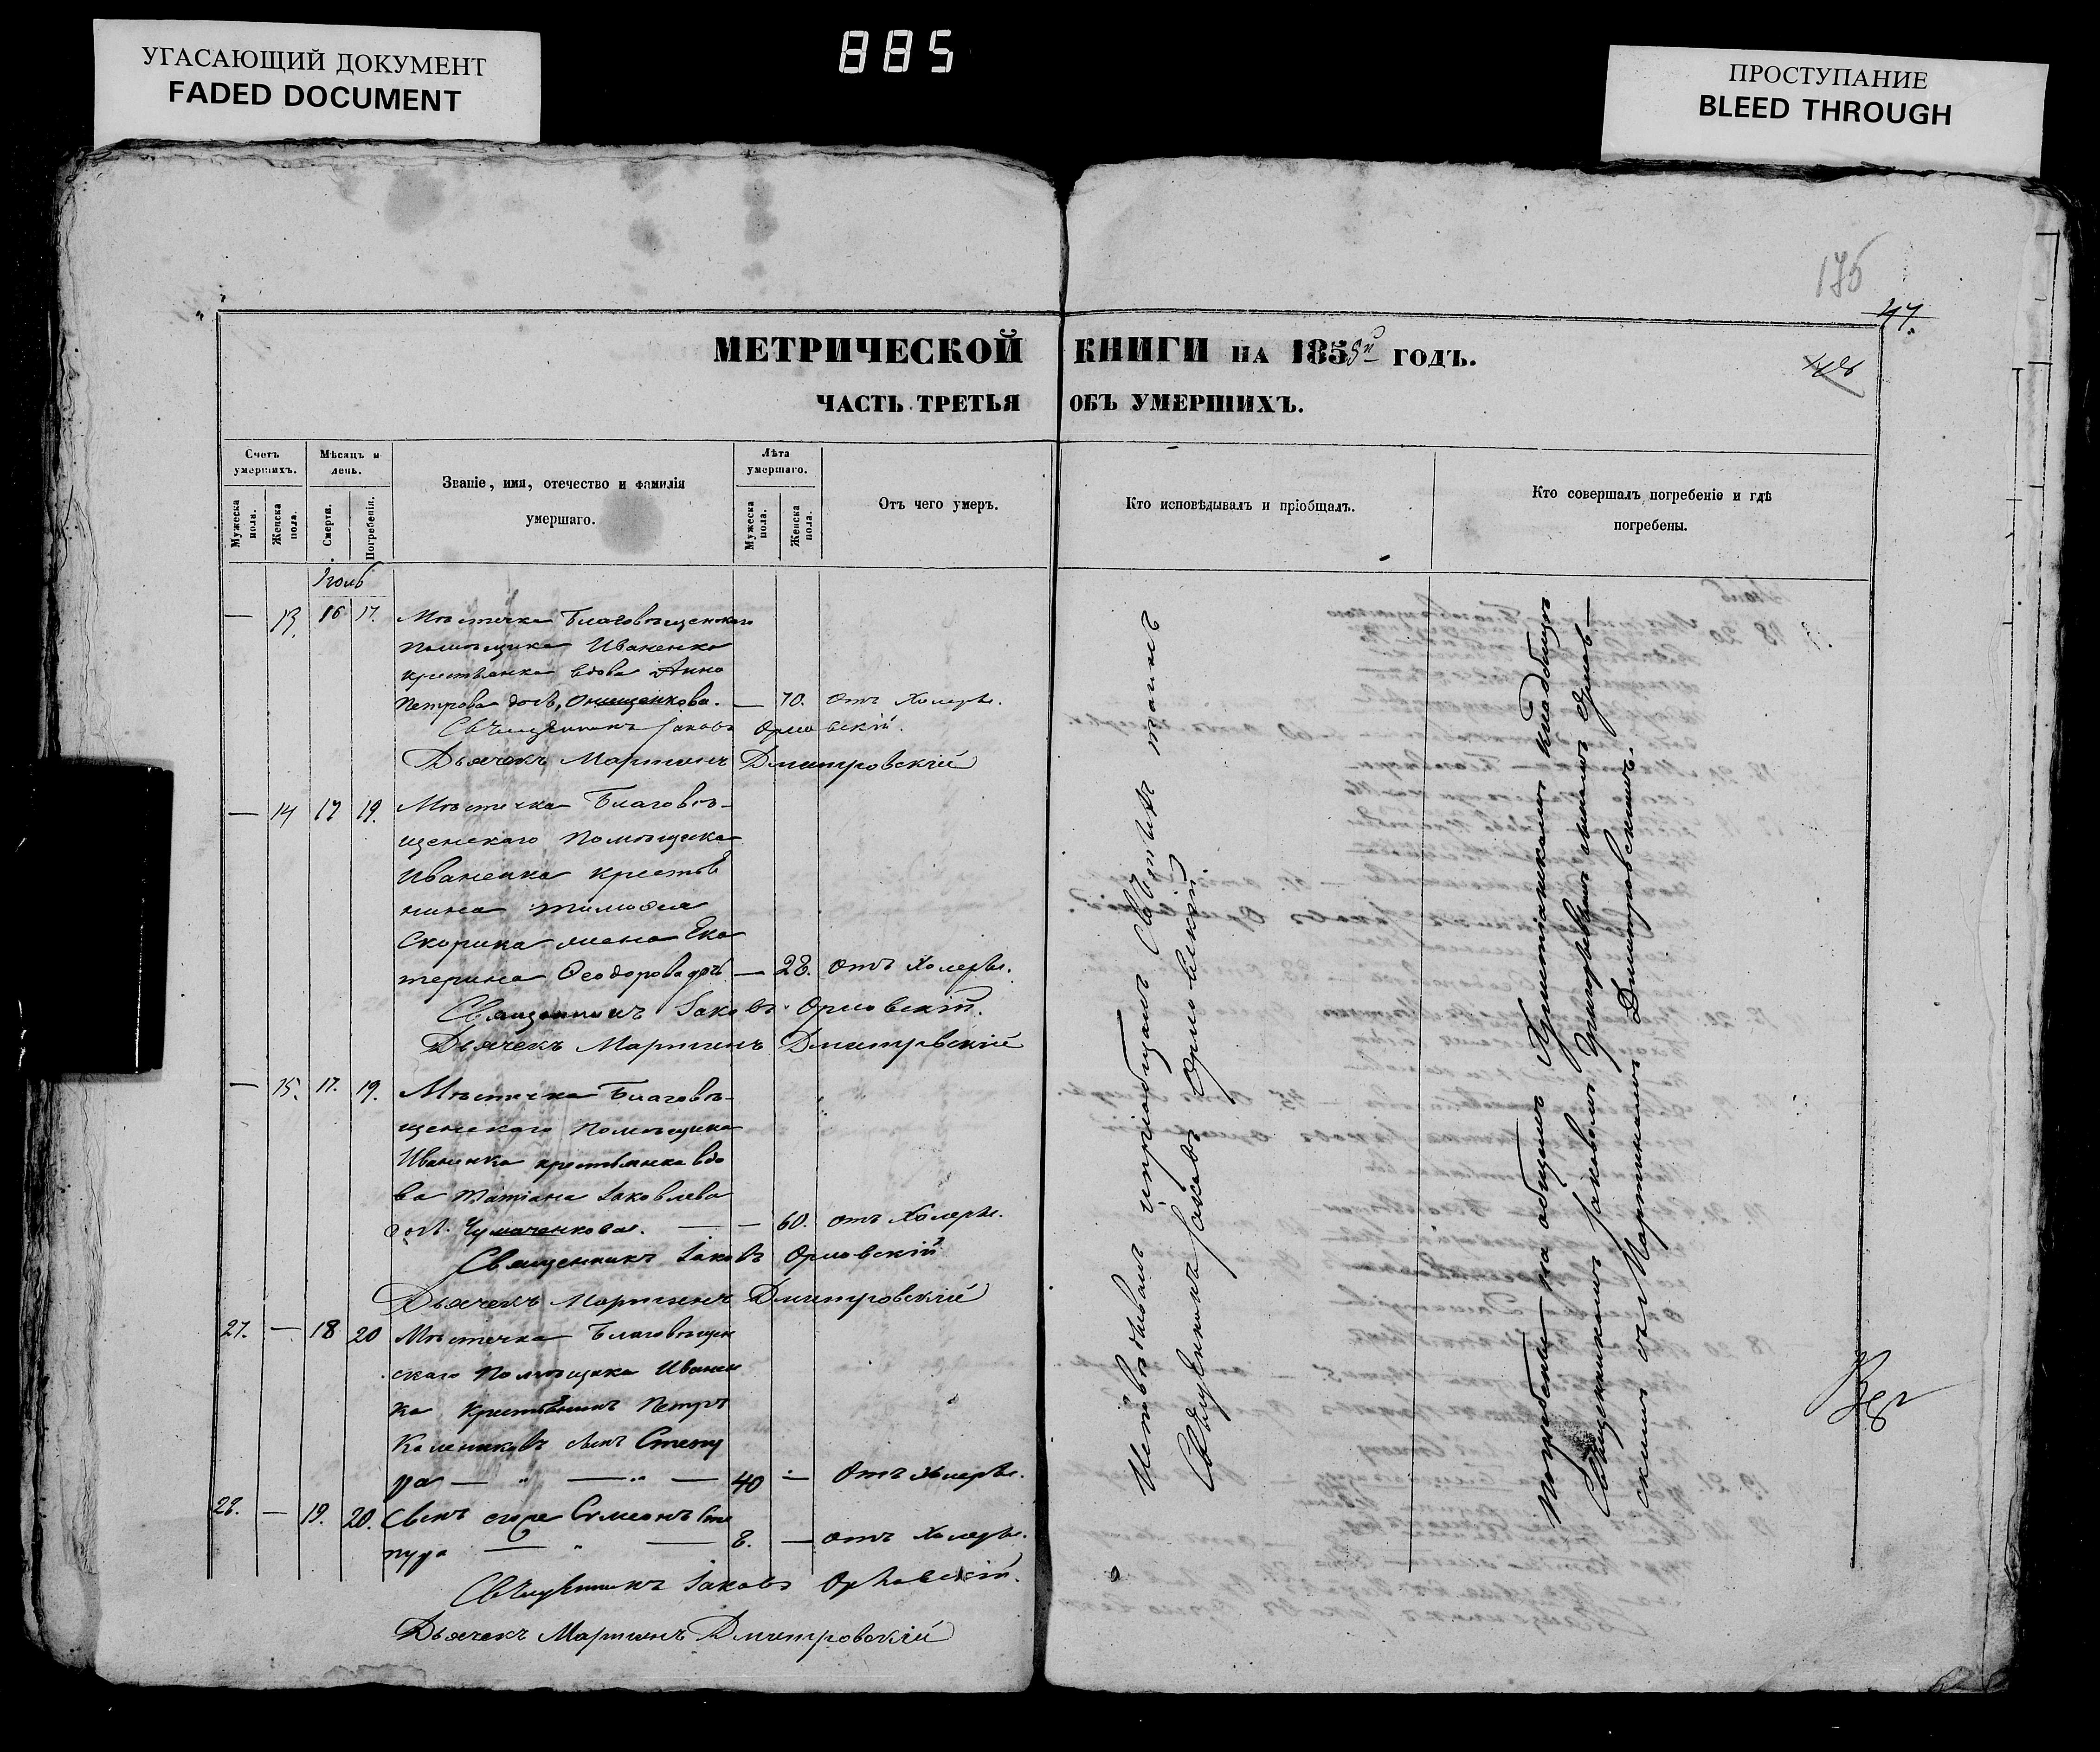 УГАСАЮЩИЙ ДОКУМЕНТ
FADED DOCUMENT
885
ПРОСТУПАНИЕ
BLEED THROUGH
175
47.
МЕТРИЧЕСКОЙ КНИГИ НА 1855й ГОДЪ.
ЧАСТЬ ТРЕТЬЯ ОБЪ УМЕРШИХЪ.
Счетъ умершихъ.
Мужеска пола.
Женска пола.
Мѣсяцъ и день.
Смерти.
Погребенія.
Званіе, имя, отечество и фамилія
умершаго.
Лѣта умершаго.
Мужеска пола.
Женска пола.
Отъ чего умеръ.
Кто исповѣдывалъ и пріобщалъ.
Кто совершалъ погребеніе и гдѣ
погребены.
— 13. 16 17. Мѣстечка Благовѣщенскаго
помѣщика Иваненка
крестьянка вдова Анна
Петрова дочь, Онищенкова. — 70. отъ Холеры.
Священникъ Іаковъ Орловскій.
Дьячекъ Мартинъ Дмитровскій
— 14 17 19. Мѣстечка Благовѣ-
щенскаго Помѣщика
Иваненка крестья
нина Тимофея
Скорика жена Ека
терина Ѳеодорова дочь — 28. отъ Холеры.
Священникъ Іаковъ Орловскій.
Дьячекъ Мартинъ Дмитровскій
— 15. 17. 19. Мѣстечка Благовѣ-
щенскаго Помѣщика
Иваненка крестьянка вдо
ва Татіана Іаковлева
дочь Чумаченкова. — — 60. отъ Холеры.
Священникъ Іаковъ Орловскій
Дьячекъ Мартинъ Дмитровскій
27. — 18 20 Мѣстечка Благовѣщен
скаго Помѣщика Иванен
ка Крестьянинъ Петръ
Калениковъ сынъ Степу
ра — " — " — 40 — Отъ холеры.
28. — 19. 20. Сынъ его Симеонъ Сте
пура — " — 8. — отъ Холеры.
Священникъ Іаковъ Орловскій.
Дьячекъ Мартинъ Дмитровскій
Исповѣдывалъ и пріобщалъ Святыхъ таинъ
Священникъ Іаковъ Орловскій
Погребены на общемъ Христіанскомъ кладбищѣ
Священникомъ Іаковомъ
скимъ съ Мартиномъ Дмитровскимъ.